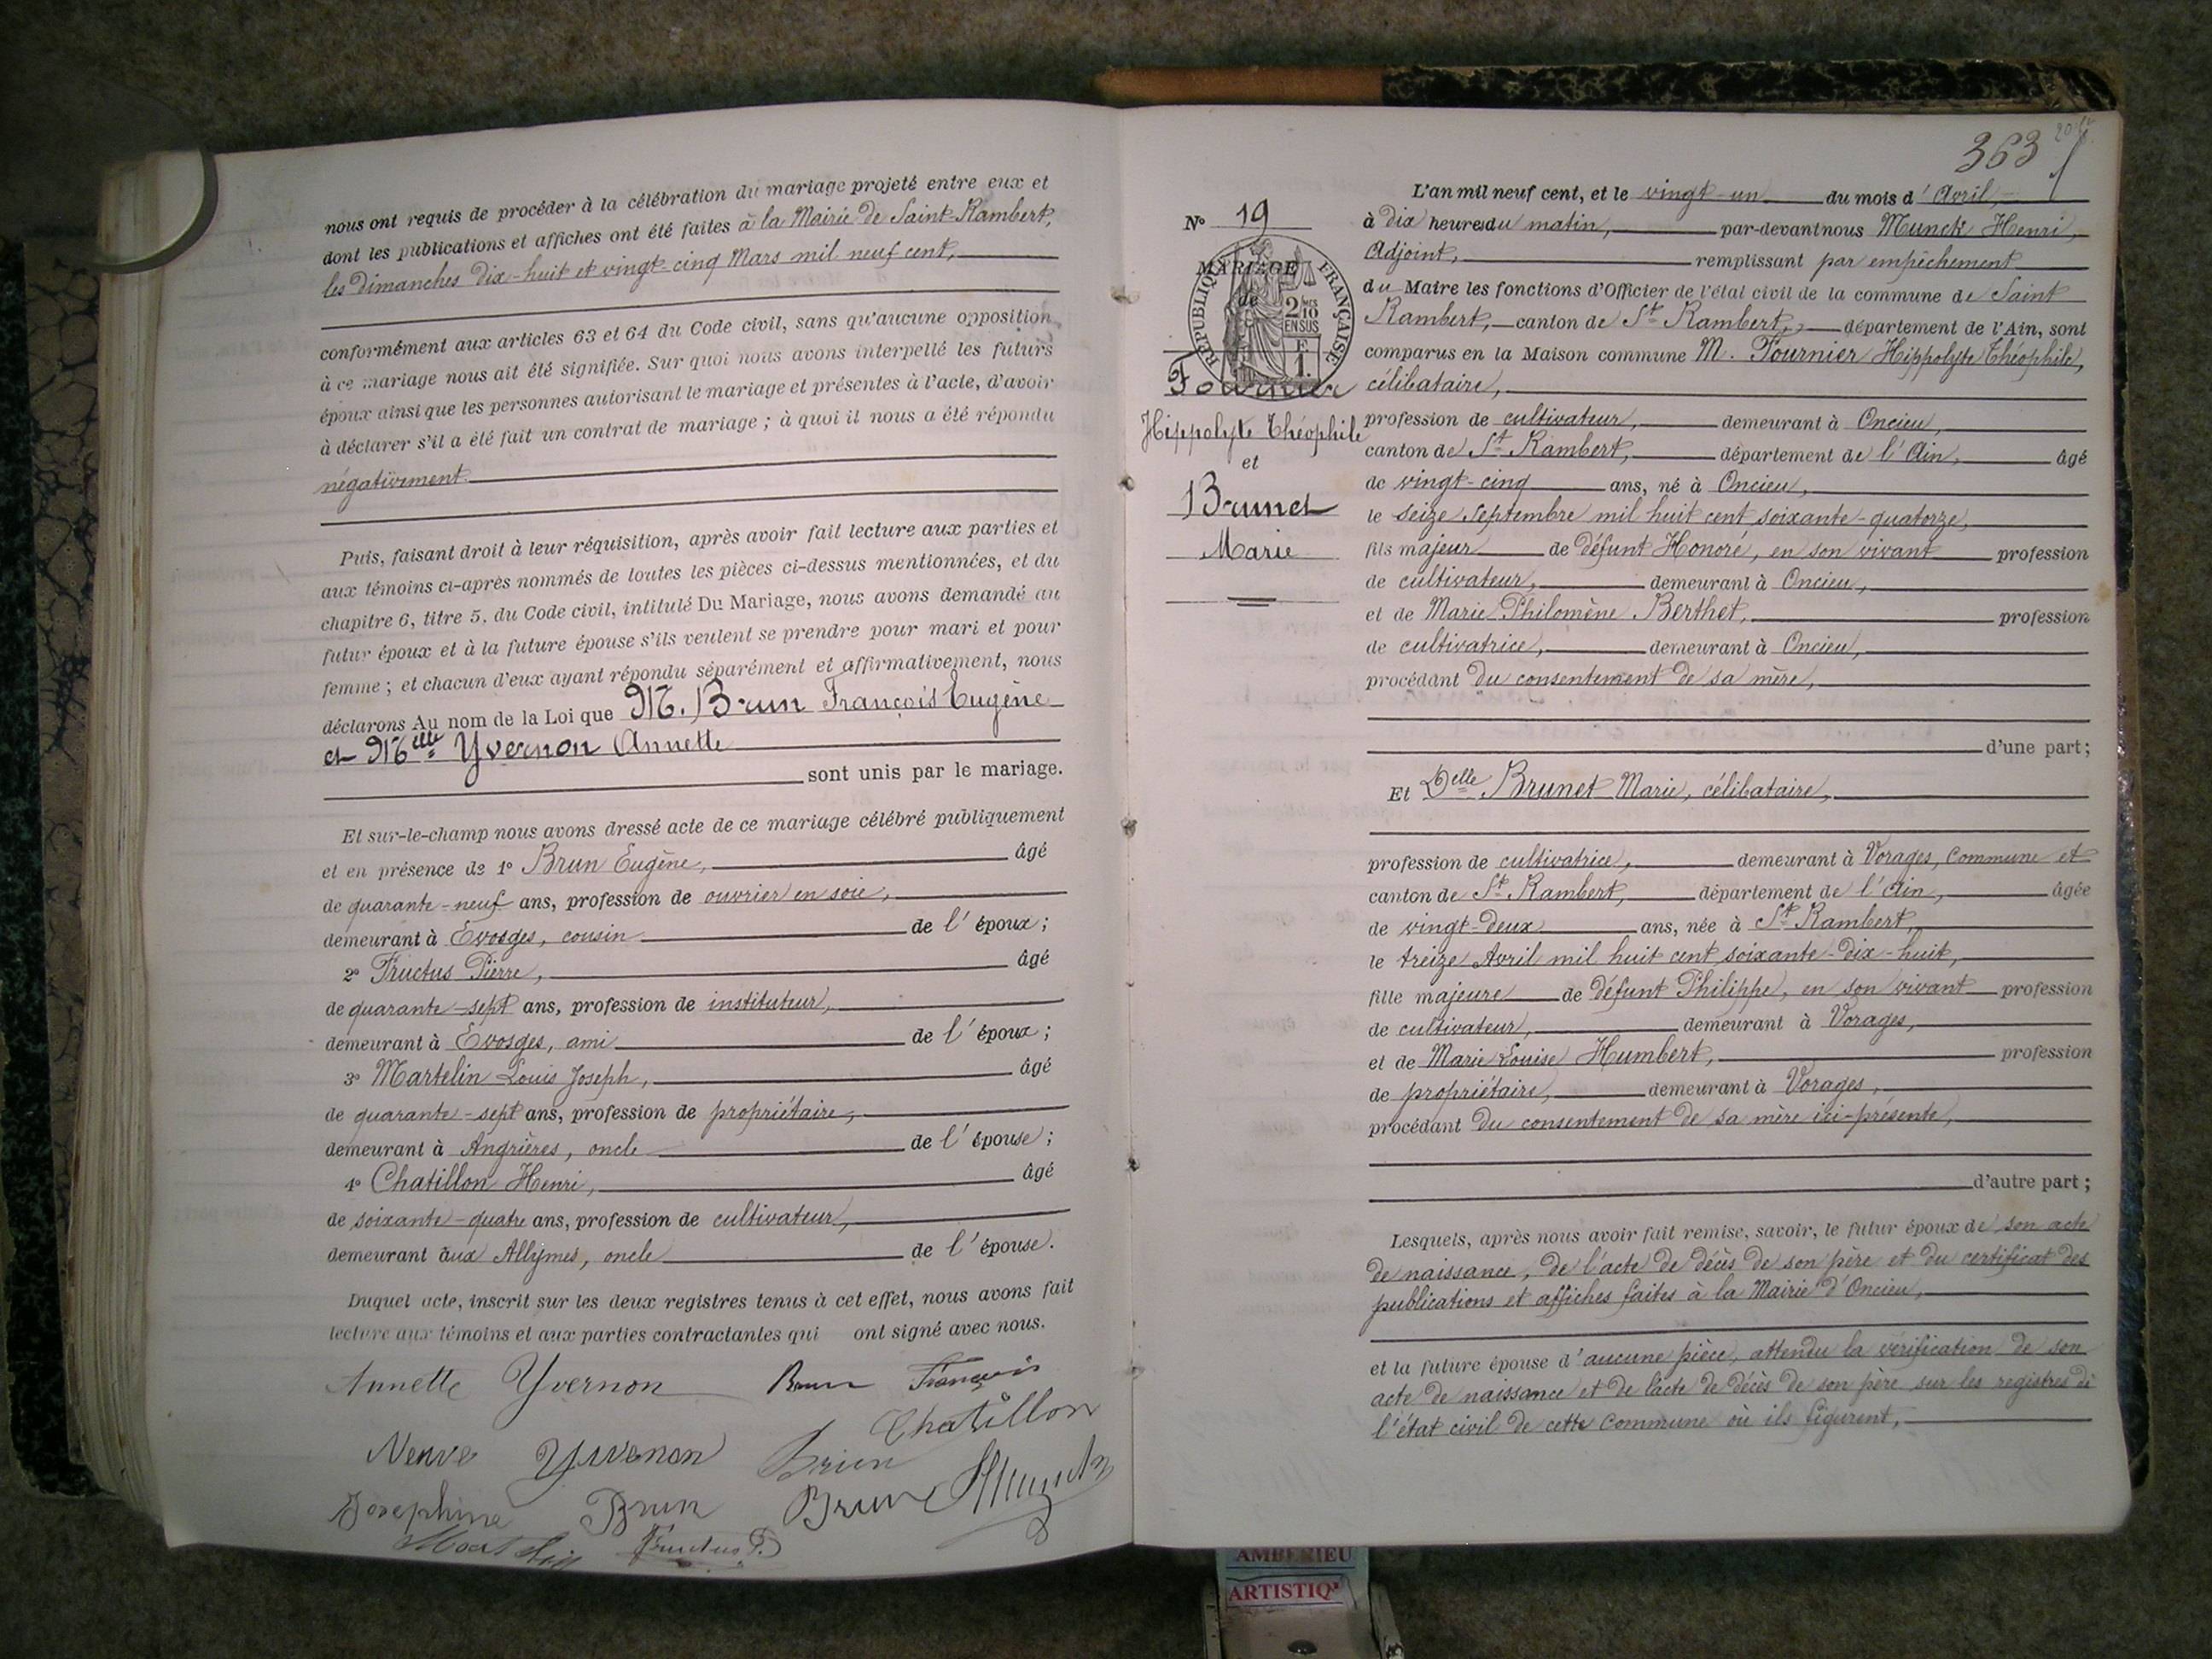 nous ont requis de procéder à la célébration du mariage projeté entre eux et
dont les publications et affiches ont été faites à la Mairie de Saint-Rambert,
les Dimanches Dix-huit et vingt-cinq Mars mil neuf cent,
conformément aux articles 63 et 64 du Code civil, sans qu'aucune opposition
à ce mariage nous ait été signifiée. Sur quoi nous avons interpellé les futurs
époux ainsi que les personnes autorisant le mariage et présentes à l'acte, d'avoir
à déclarer s'il a été fait un contrat de mariage ; à quoi il nous a été répondu
négativement.
Puis, faisant droit à leur réquisition, après avoir fait lecture aux parties et
aux témoins ci-après nommés de toutes les pièces ci-dessus mentionnées, et du
chapitre 6, titre 5, du Code civil, intitulé Du Mariage, nous avons demandé au
futur époux et à la future épouse s'ils veulent se prendre pour mari et pour
femme ; et chacun d'eux ayant répondu séparément et affirmativement, nous
déclarons Au nom de la Loi que M. Brun François Eugène
et Melle Yvernon Annette
sont unis par le mariage.
Et sur-le-champ nous avons dressé acte de ce mariage célébré publiquement
et en présence de 1° Brun Eugène, âgé
de quarante-neuf ans, profession de ouvrier en soie,
demeurant à Evosges, cousin de l'époux ;
2° Fructus Pierre, âgé
de quarante-sept ans, profession de instituteur,
demeurant à Evosges, ami de l'époux ;
3° Martelin Louis Joseph, âgé
de quarante-sept ans, profession de propriétaire,
demeurant à Angrières, oncle de l'épouse ;
4° Chatillon Henri, âgé
de soixante-quatre ans, profession de cultivateur,
demeurant aux Allymes, oncle de l'épouse.
Duquel acte, inscrit sur les deux registres tenus à cet effet, nous avons fait
lecture aux témoins et aux parties contractantes qui ont signé avec nous.
Annette Yvernon Brun François
Chatillon
Yvernon Brun
Josephine Brun Brun
Martelin Fructus P.
363
N° 19
MARIAGE
de
RÉPUBLIQUE FRANÇAISE
2 MES
10
EN SUS
F
1.
Fournier
Hippolyte Théophile
et
Brunet
Marie
L'an mil neuf cent, et le vingt-un du mois d'Avril,
à dix heures du matin, par-devant nous Munck Henri,
Adjoint, remplissant par empêchement
du Maire les fonctions d'Officier de l'état civil de la commune de Saint
Rambert, canton de St Rambert, département de l'Ain, sont
comparus en la Maison commune M. Fournier Hippolyte Théophile,
célibataire,
profession de cultivateur, demeurant à Oncieu,
canton de St Rambert, département de l'Ain, âgé
de vingt-cinq ans, né à Oncieu,
le seize Septembre mil huit cent soixante-quatorze,
fils majeur de défunt Honoré, en son vivant profession
de cultivateur, demeurant à Oncieu,
et de Marie Philomène Berthet, profession
de cultivatrice, demeurant à Oncieu,
procédant du consentement de sa mère,
d'une part ;
Et Delle Brunet Marie, célibataire,
profession de cultivatrice, demeurant à Vorages, commune et
canton de St Rambert, département de l'Ain, âgée
de vingt-deux ans, née à St Rambert,
le treize Avril mil huit cent soixante-dix-huit,
fille majeure de défunt Philippe, en son vivant profession
de cultivateur, demeurant à Vorages,
et de Marie Louise Humbert, profession
de propriétaire, demeurant à Vorages,
procédant du consentement de sa mère ici-présente,
d'autre part ;
Lesquels, après nous avoir fait remise, savoir, le futur époux de son acte
de naissance, de l'acte de décès de son père et du certificat des
publications et affiches faites à la Mairie d'Oncieu,
et la future épouse d'aucune pièce, attendu la vérification de son
acte de naissance et de l'acte de décès de son père sur les registres de
l'état civil de cette commune où ils figurent,
AMBERIEU
ARTISTIQ